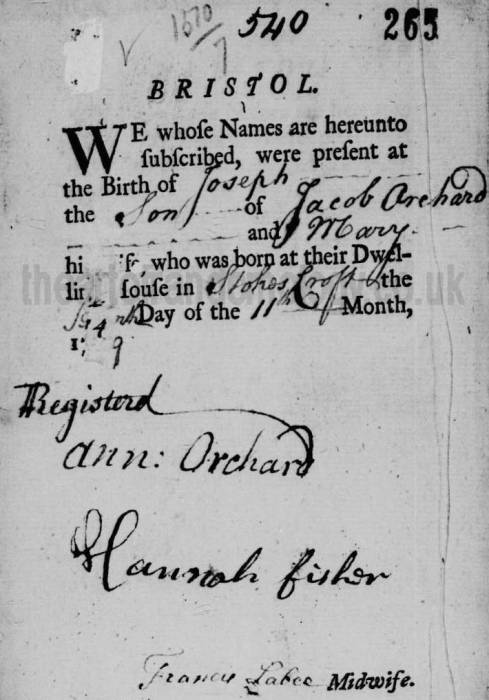 1670/7 540 265
BRISTOL.
WE whoſe Names are hereunto
ſubſcribed, were preſent at
the Birth of Joseph
the Son of Jacob Orchard
and Mary
hi iſe, who was born at their Dwel-
lin ouſe in Stokes Croft the
Day of the 11th Month,
9
Registerd
Ann: Orchard
Hannah Fisher
Francis Midwife.